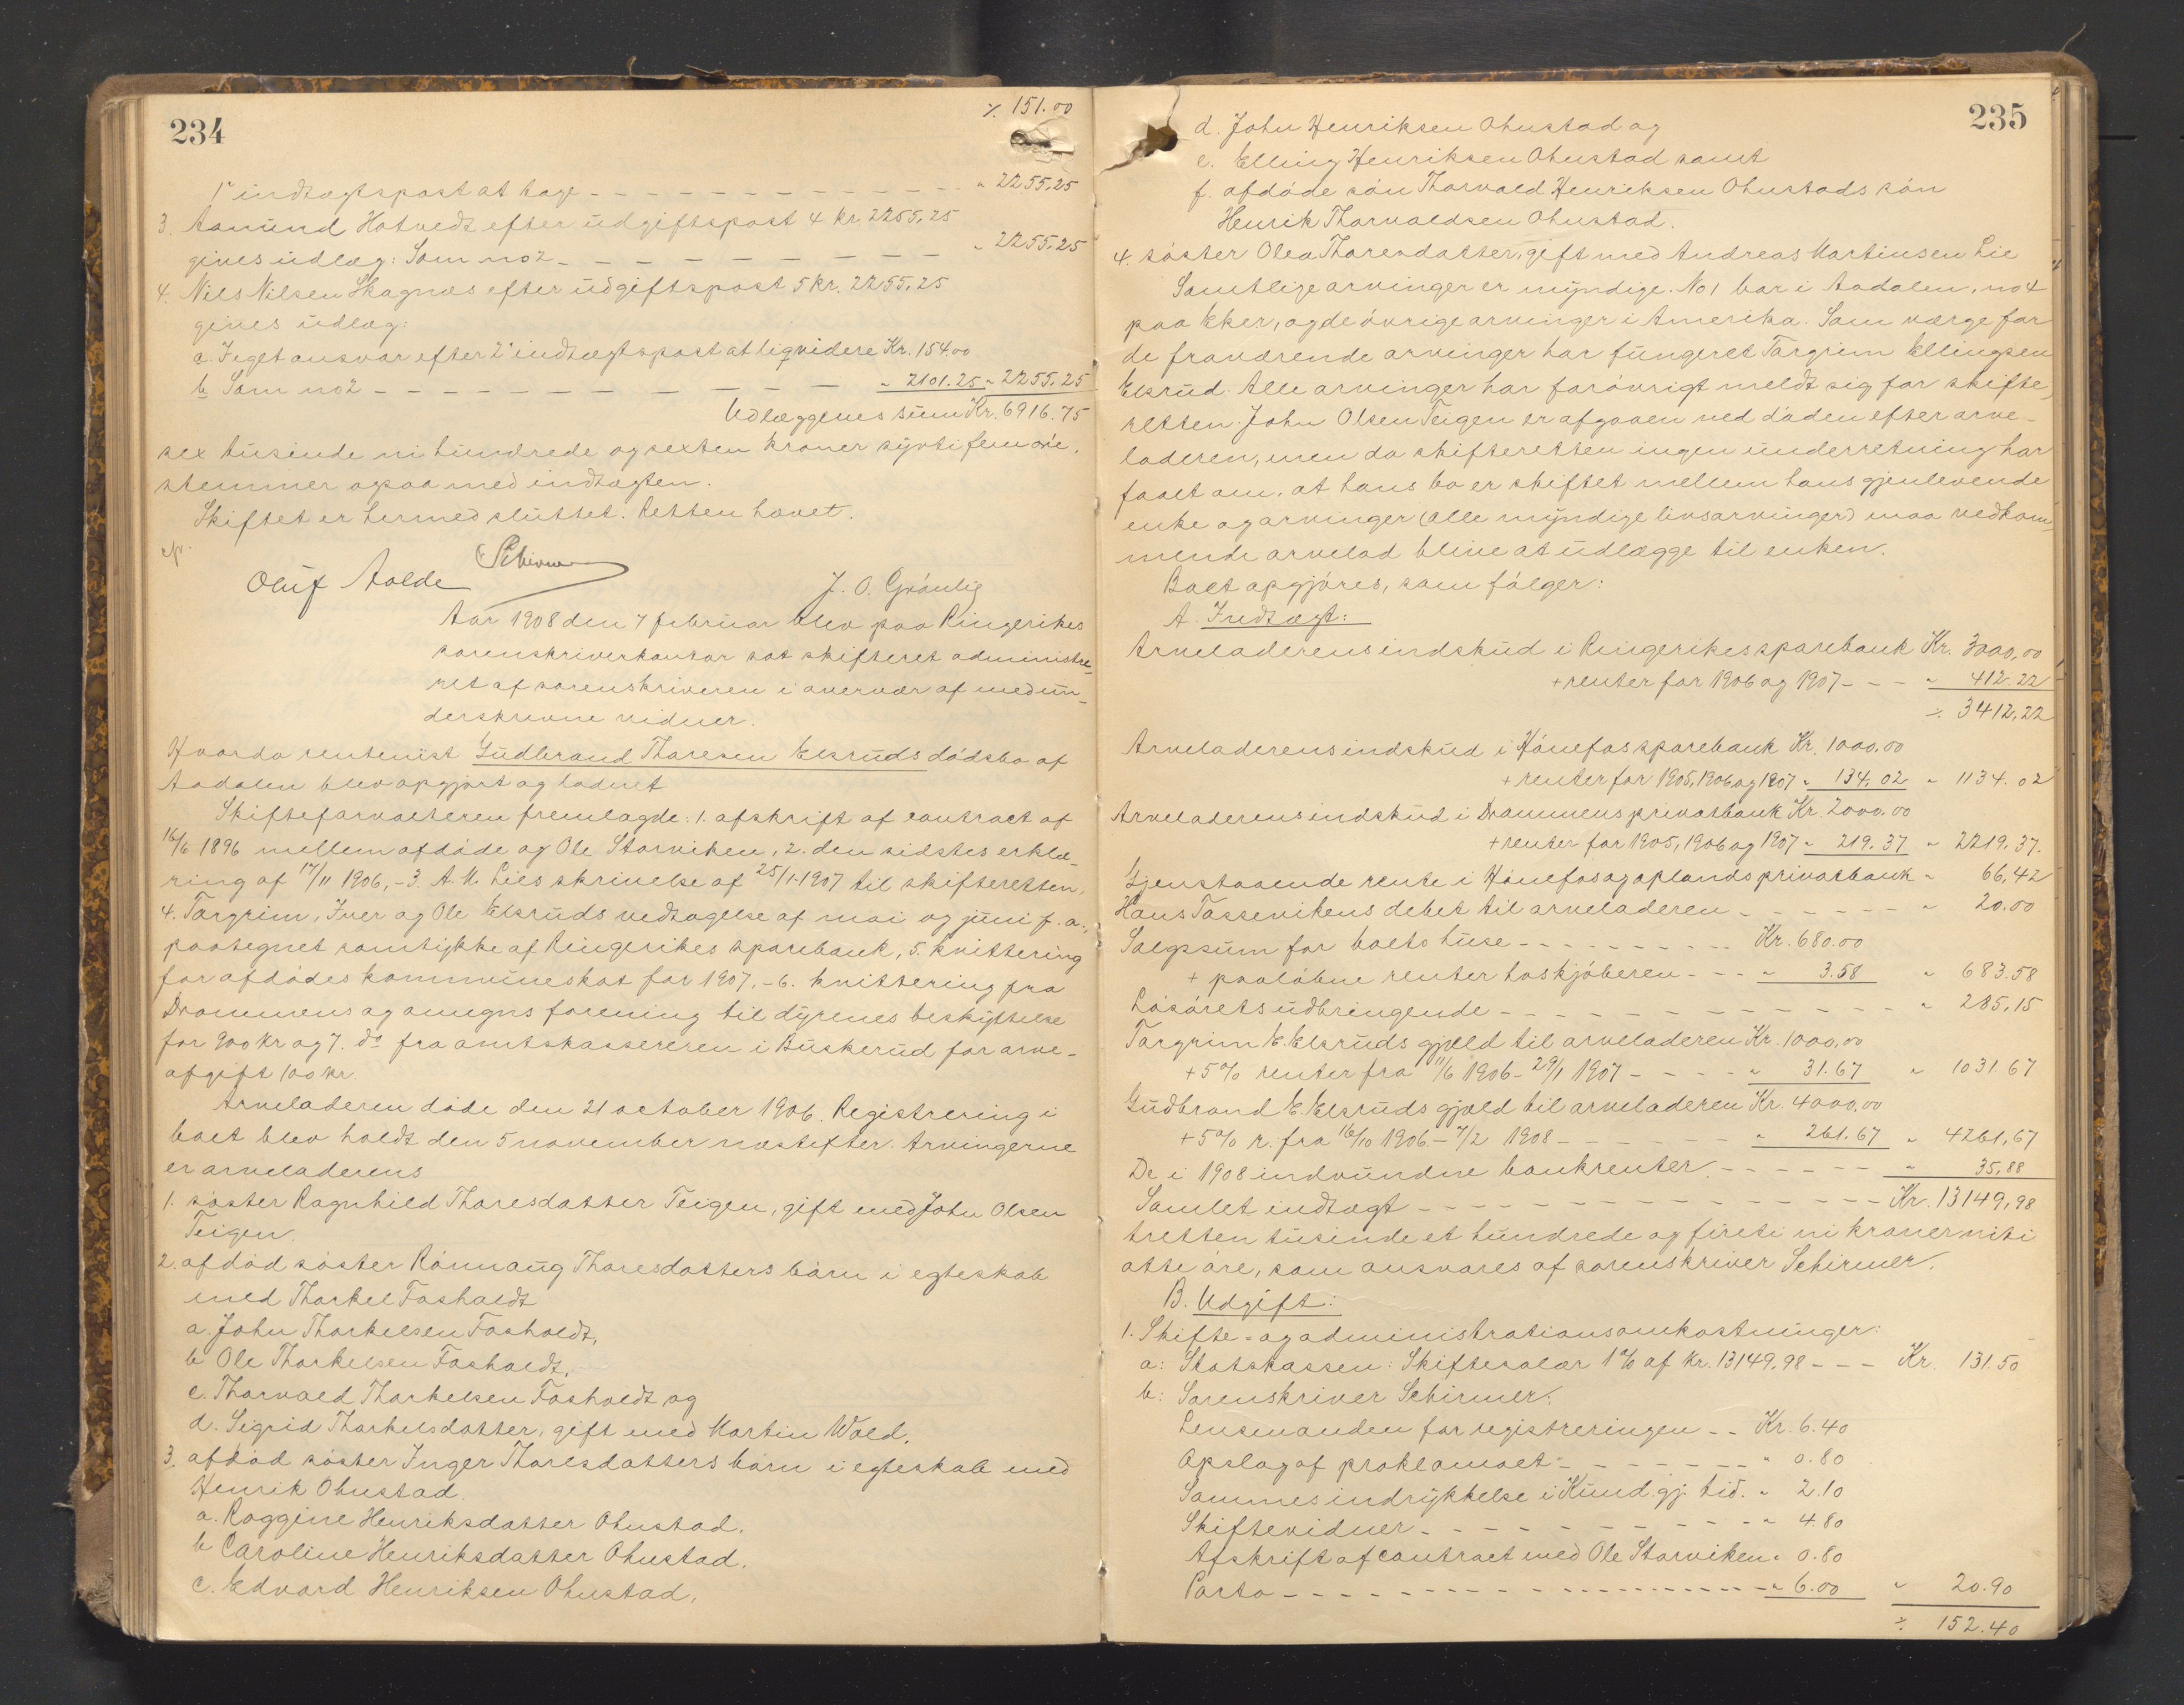 234
⁒ 151.00
1' indtægtspost at tage - - - - - - - - - - - - - " 2255.25
3. Aanund Hotvedt efter udgiftspost 4 kr. 2255,25
gives udlæg: Som no 2 - - - - - - - - - " 2255.25
4. Nils Nilsen Skagnæs efter udgiftspost 5 kr. 2255,25
gives udlæg:
a. I eget ansvar efter 2' indtægtspost at liqvidere Kr. 154.00
b Som no 2 - - - - - - - - - - - " 2101.25 " 2255.25
Udlæggenes sum Kr. 6916.75
sex tusinde ni hundrede og sexten kroner sytti fem øre,
stemmer ogsaa med indtægten.
Skiftet er hermed sluttet. Retten hævet.
Schirmer
Oluf Aalde
J. O. Grønlig
Aar 1908 den 7 februar blev paa Ringerikes
sorenskriverkontor sat skifteret administre-
ret af sorenskriveren i overvær af medun-
derskrevne vidner.
Hvorda rentenist Gudbrand Thoresen Elsruds dødsbo af
Aadalen blev opgjort og loddet
Skifteforvalteren fremlagde: 1. afskrift af contract af
16/6 1896 mellem afdøde og Ole Storviken, 2. den sidstes erklæ-
ring af 17/11 1906, - 3. A. M. Lies skrivelse af 25/1-1907 til skifteretten,
4. Torgrim, Iver og Ole Elsruds vedtagelse af mai og juni f. a.,
paategnet samtykke af Ringerikes sparebank, 5. kvittering
for afdødes kommuneskat for 1907, - 6. kvittering fra
Drammens og omegns forening til dyrenes beskyttelse
for 900 kr og 7. do fra amtskassereren i Buskerud for arve-
afgift 100 kr.
Arveladeren døde den 21 october 1906. Registrering i
boet blev holdt den 5 november næstefter. Arvingerne
er arveladerens
1. søster Ragnhild Thoresdatter Teigen, gift med John Olsen
Teigen.
2. afdød søster Rønnaug Thoresdatters børn i egteskab
med Thorkel Fosholdt
a. John Thorkelsen Fosholdt,
b Ole Thorkelsen Fosholdt,
c. Thorvald Thorkelsen Fosholdt og
d. Sigrid Thorkelsdatter, gift med Martin Wold.
3. afdød søster Inger Thoresdatters børn i egteskab med
Henrik Ohnstad.
a. Raggine Henriksdatter Ohnstad.
b Caroline Henriksdatter Ohnstad.
c. Edvard Henriksen Ohnstad,
235
d. John Henriksen Ohnstad og
e. Elling Henriksen Ohnstad samt
f. afdøde søn Thorvald Henriksen Ohnstads søn
Henrik Thorvaldsen Ohnstad.
4. søster Olea Thoresdatter, gift med Andreas Martinsen Lie
Samtlige arvinger er myndige. No 1 bor i Aadalen, no 4
paa Eker, og de øvrige arvinger i Amerika. Som værge for
de fraværende arvinger har fungeret Torgrim Ellingsen
Elsrud. Alle arvinger har forøvrigt meldt sig for skifte-
retten. John Olsen Teigen er afgaaen ved døden efter arve-
laderen, men da skifteretten ingen underretning har
faaet om, at hans bo er skiftet mellem hans gjenlevende
enke og arvinger (alle myndige livsarvinger) maa vedkom-
mende arvelod blive at udlægge til enken.
Boet opgjøres, som følger:
A. Indtægt:
Arveladerens indskud i Ringerikes sparebank Kr. 3000,00
+ renter for 1906 og 1907 - - - " 412.22
⁒ 3412,22
Arveladerens indskud i Hønefos sparebank Kr. 1000.00
+ renter for 1905, 1906 og 1907 " 134.02 " 1134.02
Arveladerens indskud i Drammens privatbank Kr. 2000.00
+ renter for 1905, 1906 og 1907 " 219.37 " 2219.37.
Gjenstaaende rente i Hønefos og oplands privatbank " 66,42
Hans Tossevikens debet til arveladeren - - - - - - " 20.00
Salgssum for boets huse - - - - - - - - - - Kr. 680.00
+ paaløbne renter hos kjøberen - - - " 3.58 " 683.58
Løsørets udbringende - - - - - - - - - - - - - " 285,15
Torgrim E. Elsruds gjæld til arveladeren Kr. 1000,00
+ 5% renter fra 11/6 1906 - 29/1 1907 - - - - " 31.67 " 1031.67
Gudbrand E. Elsruds gjæld til arveladeren Kr. 4000,00
+ 5% r. fra 16/10 1906 - 7/2 1908 - - - - - - " 261.67 " 4261,67
De i 1908 indvundne bankrenter - - - - - - " 35,88
Samlet indtægt - - - - - - - - - - - - - Kr. 13149,98
tretten tusinde et hundrede og fireti ni kroner niti
otte øre, som ansvares af sorenskriver Schirmer.
B. Udgift:
1. Skifte- og administrationsomkostninger:
a: Statskassen: Skiftesalær 1% af kr. 13149.98 - - - Kr. 131.50
b: Sorenskriver Schirmer:
Lensmanden for registreringen - - Kr. 6.40
Opslag af proklamaet - - - - - - - " 0.80
Sammes indrykkelse i Kund.gj. tid. " 2.10
Skiftevidner - - - - - - - - - - - " 4.80
Afskrift af contract med Ole Storviken " 0.80
Porto - - - - - - - - - - - - - - - " 6.00 " 20.90
⁒ 152.40